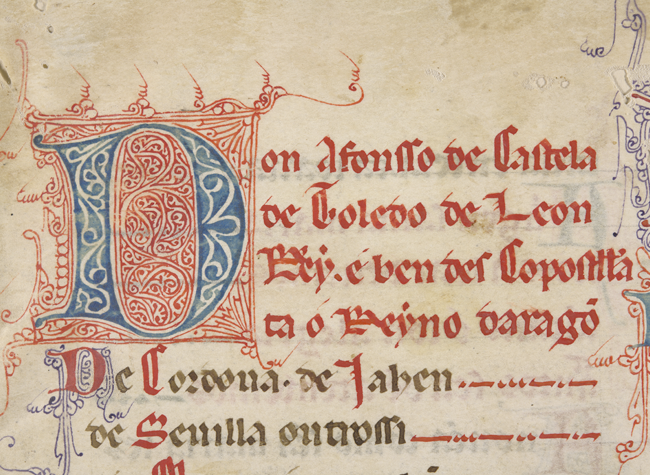 Don Afonsso de Castela
de Toledo de Leon
Rey. e ben des Coposteta
ta o Reyno daragõ
De Cordoua. de Jahen
de Seuilla outrossi